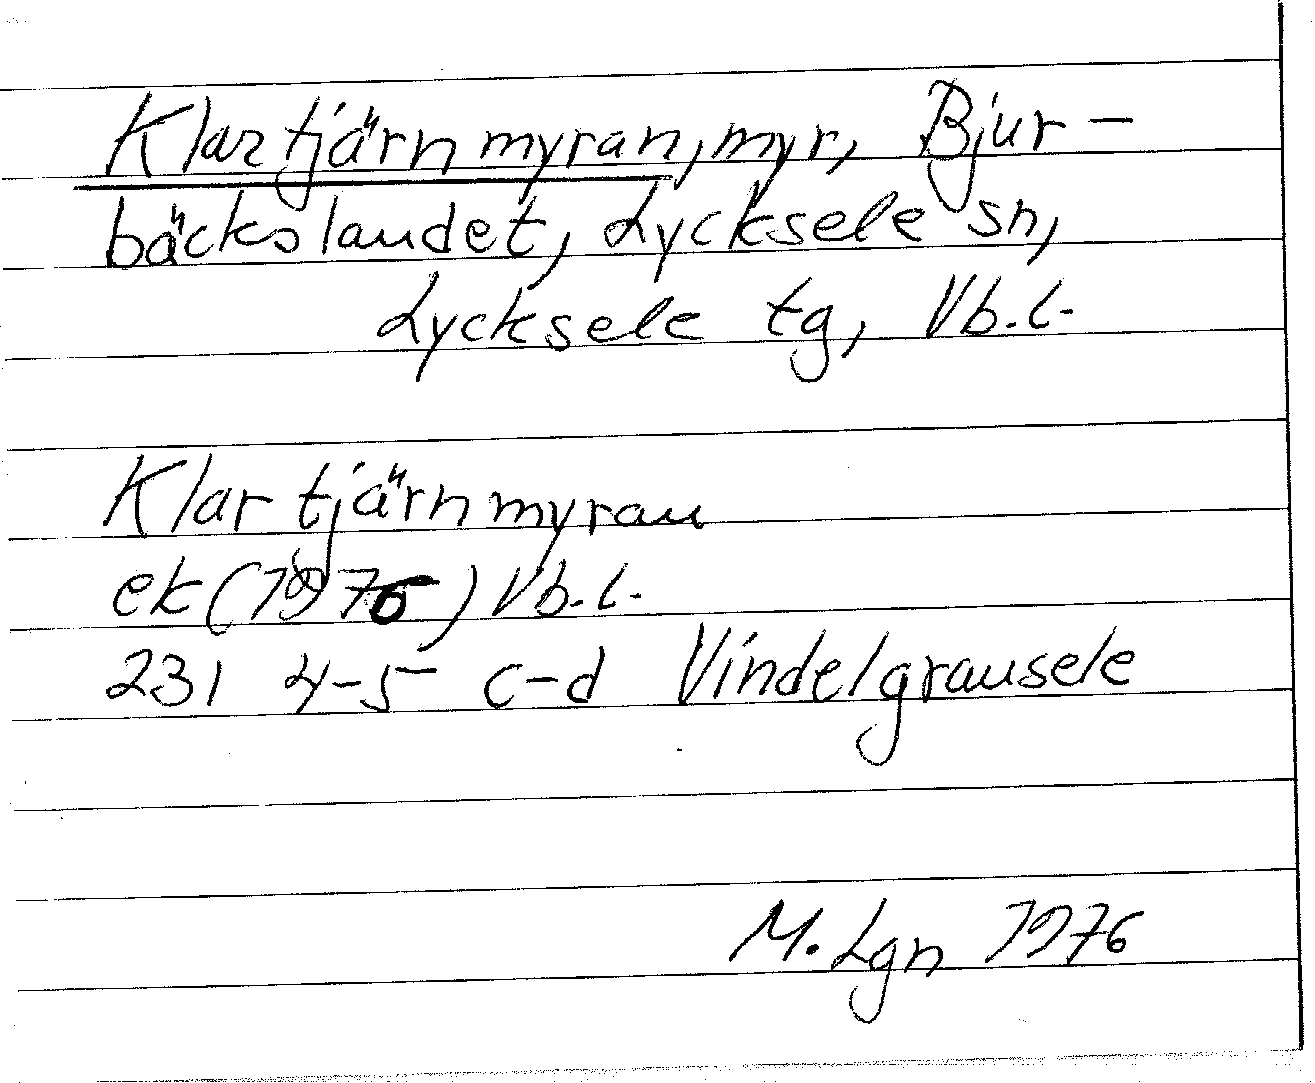 Klartjärnmyran, myr, Bjur-
bäckslandet, Lycksele sn,
Lycksele tg, Vb.l.
Klartjärnmyran
ek (1976) Vb.l.
23I 4-5 c-d Vindelgransele
M. Lgn 1976